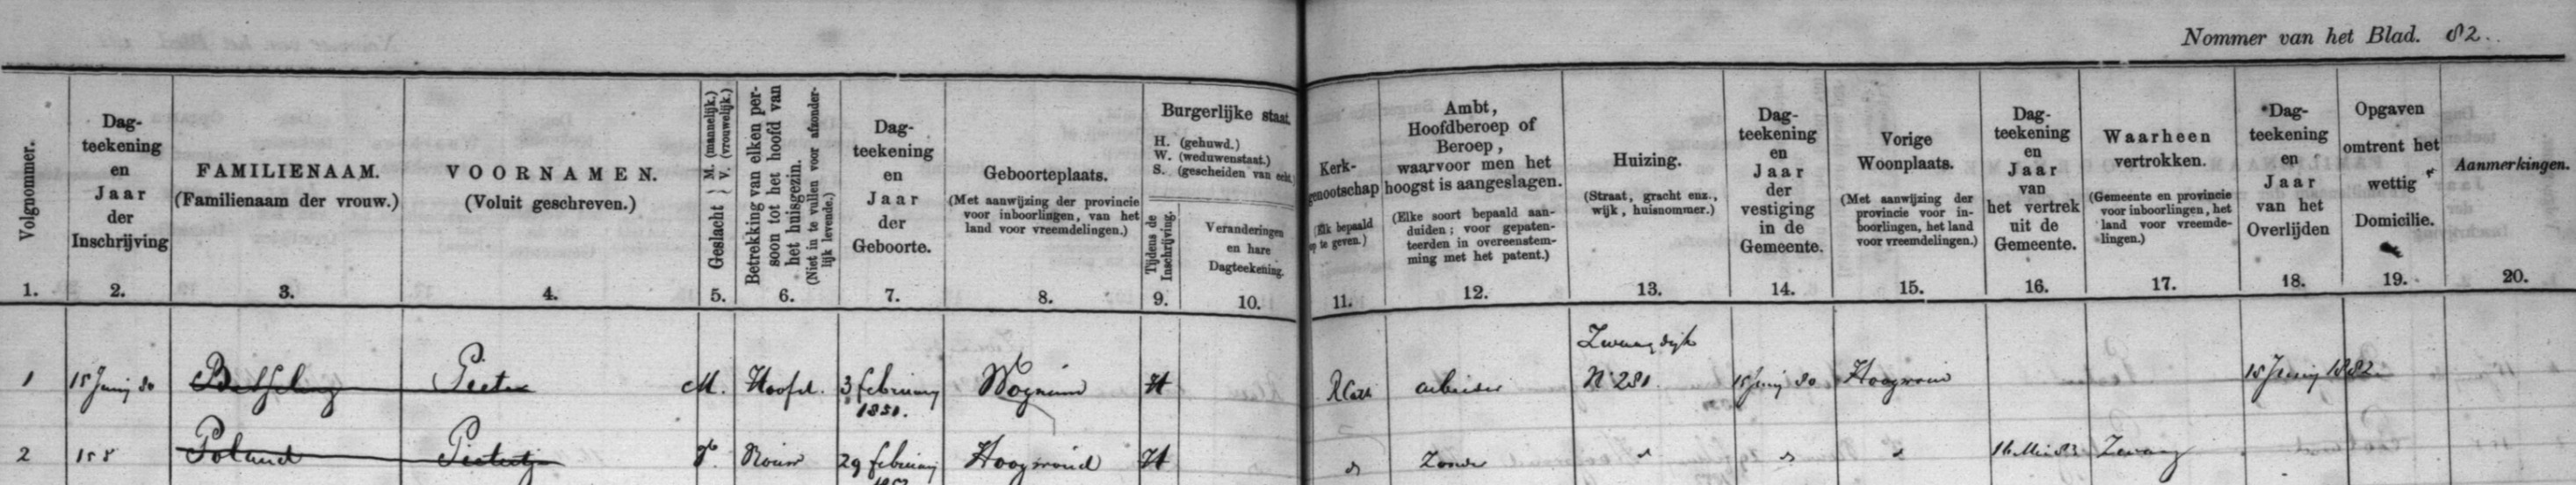 Nommer van het Blad. 82.
Volgnommer.
1.
Dag-
teekening
en
Jaar
der
Inschrijving
2.
FAMILIENAAM.
(Familienaam der vrouw.)
3.
VOORNAMEN.
(Voluit geschreven.)
4.
Geslacht { M. (mannelijk.)
V. (vrouwelijk.)
5.
Betrekking van elken per-
soon tot het hoofd van
het huisgezin.
(Niet in te vullen voor afzonder-
lijk levende.)
6.
Dag-
teekening
en
Jaar
der
Geboorte.
7.
Geboorteplaats.
(Met aanwijzing der provincie
voor inboorlingen, van het
land voor vreemdelingen.)
8.
Burgerlijke staat.
H. (gehuwd.)
W. (weduwenstaat.)
S. (gescheiden van echt.)
Tijdens de
Inschrijving.
9.
Veranderingen
en hare
Dagteekening.
10.
Kerk-
genootschap
(Elk bepaald
op te geven.)
11.
Ambt,
Hoofdberoep of
Beroep,
waarvoor men het
hoogst is aangeslagen.
(Elke soort bepaald aan-
duiden; voor gepaten-
teerden in overeenstem-
ming met het patent.)
12.
Huizing.
(Straat, gracht enz.,
wijk, huisnommer.)
13.
Dag-
teekening
en
Jaar
der
vestiging
in de
Gemeente.
14.
Vorige
Woonplaats.
(Met aanwijzing der
provincie voor in-
boorlingen, het land
voor vreemdelingen.)
15.
Dag-
teekening
en
Jaar
van
het vertrek
uit de
Gemeente.
16.
Waarheen
vertrokken.
(Gemeente en provincie
voor inboorlingen, het
land voor vreemde-
lingen.)
17.
Dag-
teekening
en
Jaar
van het
Overlijden
18.
Opgaven
omtrent het
wettig
Domicilie.
19.
Aanmerkingen.
20.
Zwaagdijk
1 15 Junij 80 Besseling Pieter M. Hoofd. 3 februarij Wognum H RCath arbeider N 281. 15 Junij 80 Hoogwoud 15 Junij 1882
1851.
2 15 8 Poland Pietertje V. Vrouw 29 februarij Hoogwoud H " Zonder " " " 16 Mei 83 Zwaag